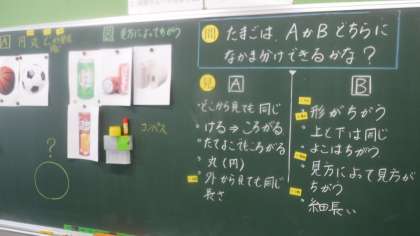 見方によってちがう
問 たまごは、AかBどちらに
なかま分けできるかな？
A
どこから見ても同じ
ける⇒ころがる
たてよこでもころがる
丸(円)
外から見ても同じ
長さ
B
形がちがう
上と下は同じ
よこはちがう
見方によって見方が
ちがう
細長い
コンパス
？